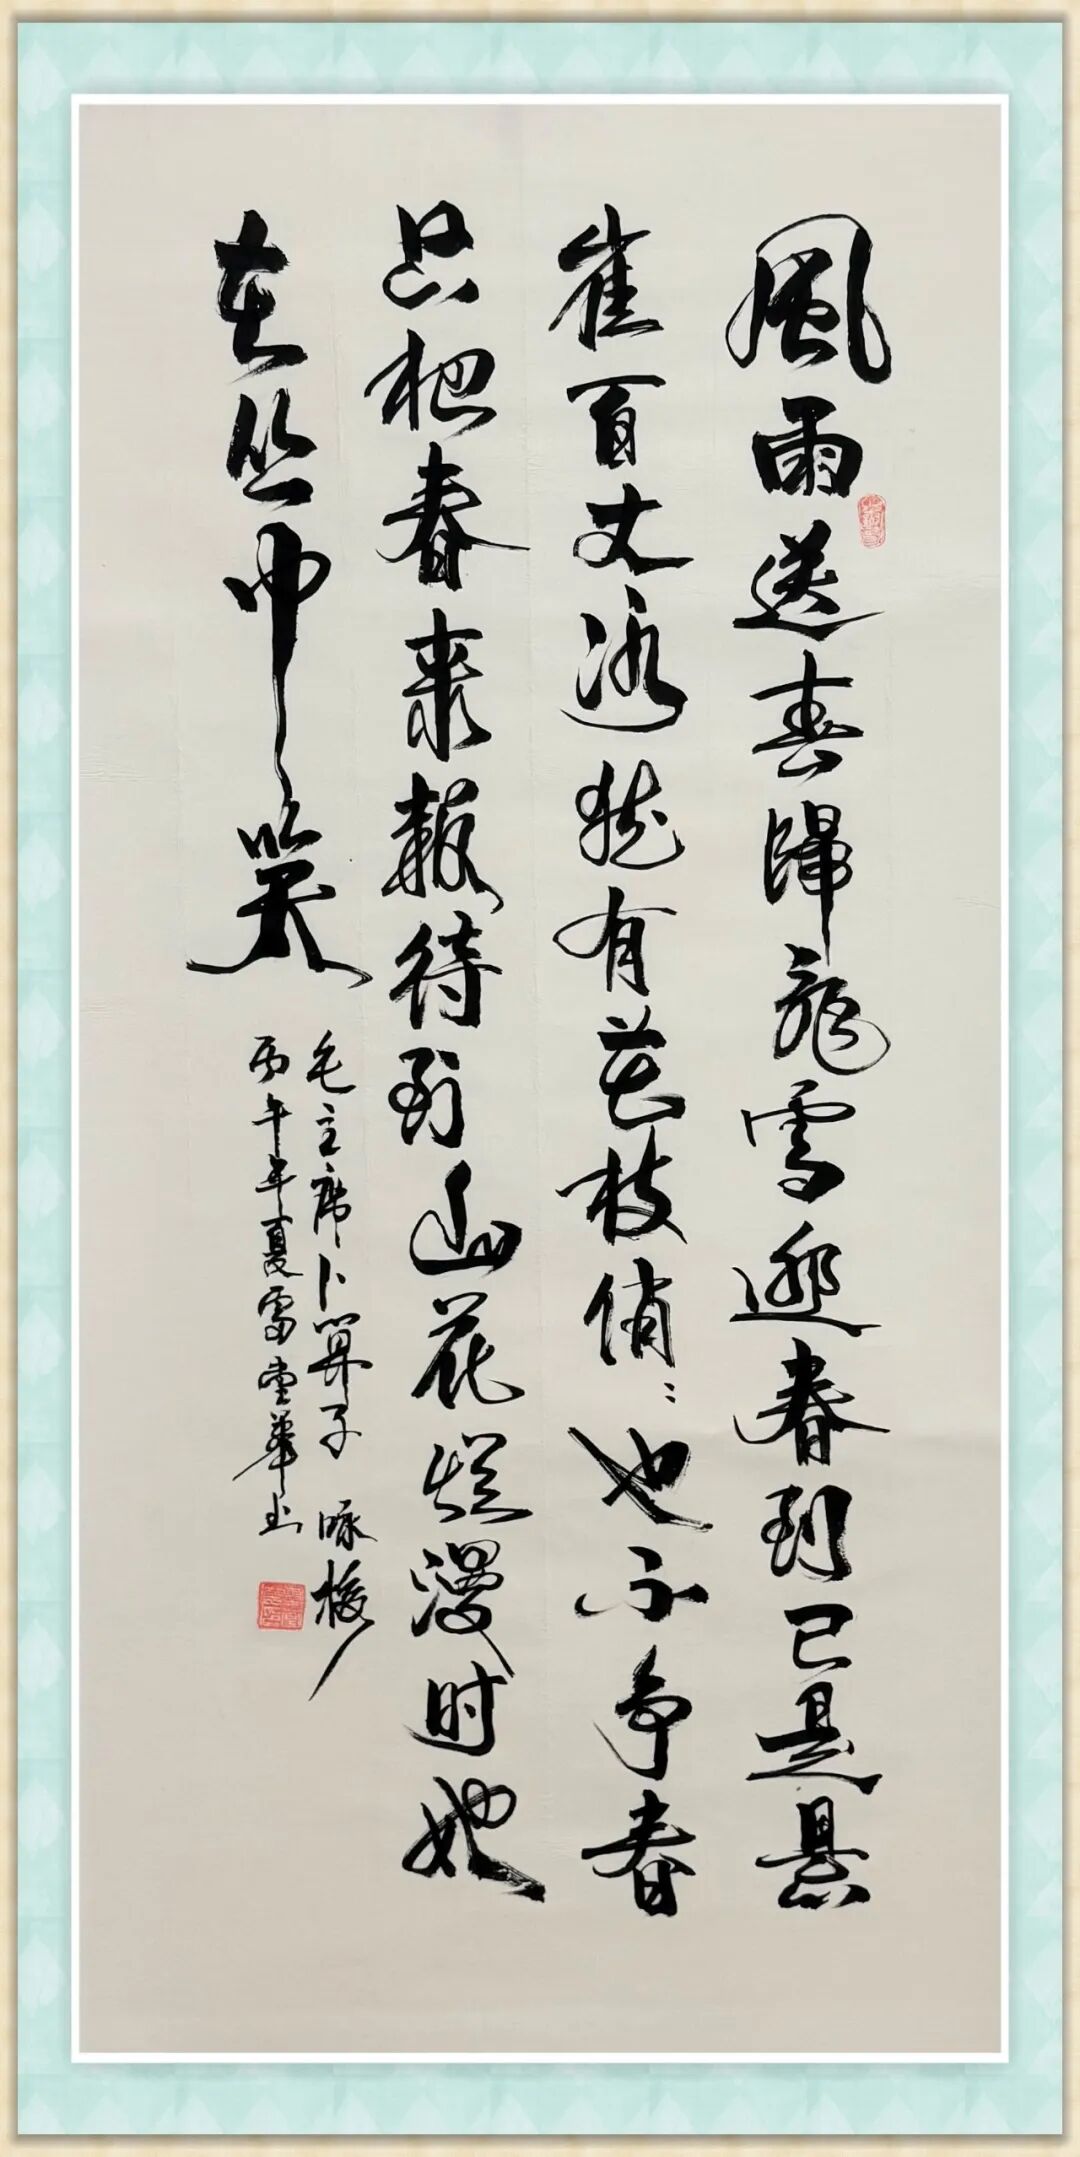 風雨送春歸飛雪迎春到已是悬
崔百丈冰犹有花枝俏〻也不争春
只把春来報待到山花烂漫时她
在丛中笑
毛主席卜算子 咏梅
丙午年夏雷華书